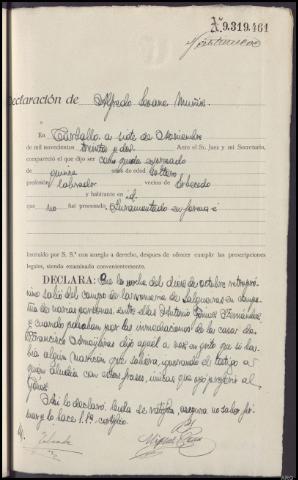 Nº 9.319.461
Declaración de Alfredo Lozano Muñiz
En Carballo a siete de Noviembre
de mil novecientos treinta y dos. Ante el Sr. Juez y mi Secretario,
compareció el que dijo ser como queda expresado
de quince años de edad soltero
profesión labrador vecino de
y habitante en id.
que no fué procesado, juramentado en forma e
instruído por S. S.ª con arreglo a derecho, despues de ofrecer cumplir las prescripciones
legales, siendo examinado convenientemente.
DECLARA: Que la noche del diez de octubre retropró-
ximo salió del campo de la romería de en compa-
ñía de varias personas, entre ellas Antonio Gómez
y cuando pasaban por las inmediaciones de la casa de
Francisco dijo aquel a voz en grito que si ha-
bía algún maricón que saliera, ignorando el testigo a
quien aludía con estas frases, únicas que oyó proferir al
Gómez
Así lo declaró, leída se ratifica, asegura no saber fir-
mar y lo hace S. Sª. certifico.